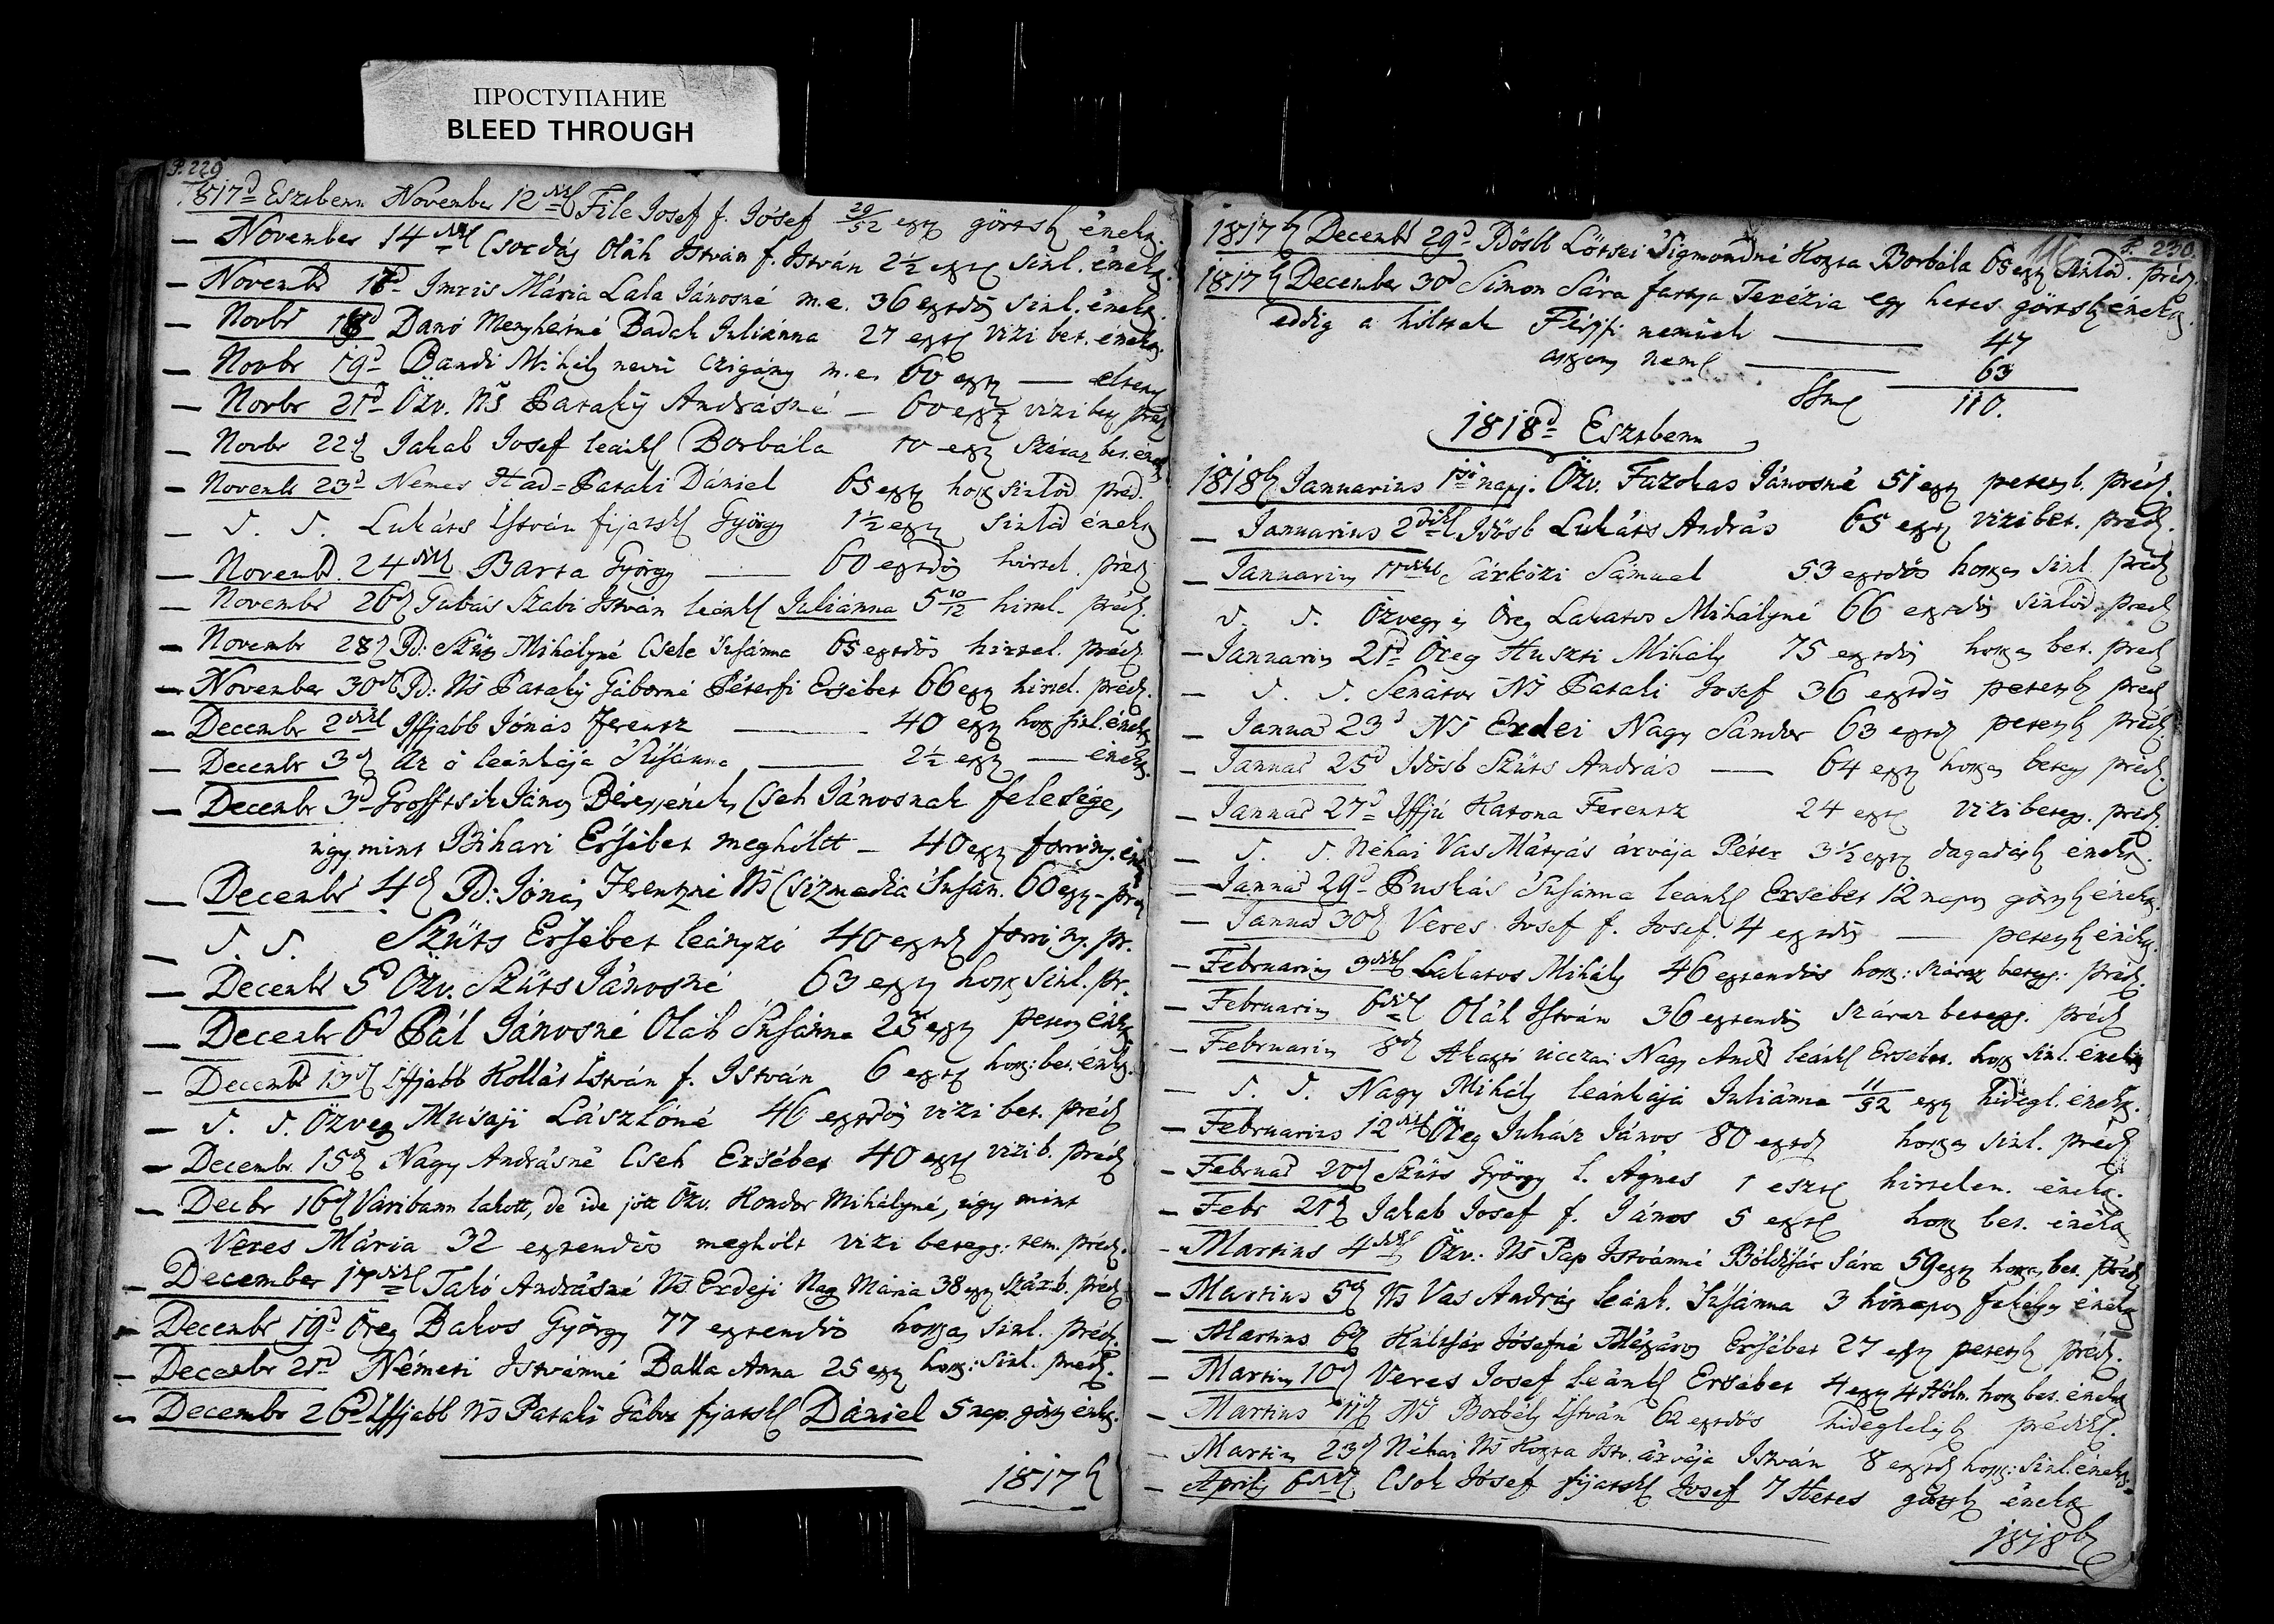 ПРОСТУПАНИЕ
BLEED THROUGH
P. 229
1817d Eszibenn November 12dik File Josef f. Jósef 20/52 eszt görtsb énekz.
— November 14dik Csordás Oláh Istvan f. István 2½ eszt sinl. énekz.
— Novembr 17d Imris Mária Lala Jánosné m.e. 36 esztdős sinl. énekz.
— Novbr 18d Danó Menyhértné Badak Juliánna 27 eszt vizi bet. énekz.
— Novbr 19d Bandi Mihály nevü Czigány m.e. 60 eszt —
— Novbr 21d Özv. Ns Pataky Andrásné — 60 eszt vizi bet préd
— Novbr 22d Jakab Josef leánk Borbála 10 eszt száraz bet. énekz
— Novembr 23d Nemes Had=Pataki Dániel 65 eszt hosz sinlöd préd.
— d. d. Lukáts István fijatsk György 1½ eszt sinlöd énekz
— Novembr 24dik Barta György — 60 esztdős hirtel. préd
— November 26d Gubás Szabi István leánk Juliánna 5 10/12 himl. préd.
— Novembr 28d Id: Szüts Mihályné Csete Susánna 65 esztdős hirtel. préd
— November 30dk Id: Ns Pataky Gáborné Péterfi Ersébet 66 eszt hirtel. préd.
— Decembr 2dik Iffjabb Jónás Ferentz — 40 eszt hosz sinl. énekz
— Decembr 3d Az ö leánkája Susánna — 2½ eszt — énekz.
— Decembr 3d János Béressének Cseh Jánosnak felesége,
úgy mint Bihari Ersébet meghóltt — 40 eszt forróny. énekz
— Decembr 4d Id: Jónás Ferentzné Ns Csizmadia Susán. 60 eszt — préd
— d. d. Szüts Ersébet leányzó 40 esztd forróny. pr.
— Decembr 5d Özv. Szüts Jánosné 63 eszt hosz sinl. pr.
— Decembr 6d Pál Jánosné Oláh Susánna 25 eszt petets énekz
— Decembr 13d Iffjabb Kollát István f. István 6 eszt hosz: bet. énekz.
— d. d. Özveg Musaji Lászlóné 46 esztdős vizi bet. préd
— Decembr. 15d Nagy Andrásné Cseh Ersébet 40 eszt vizi b. préd
— Decbr 16d Váribann lakott, de ide jött Özv. Kondor Mihályné, úgy mint
Veres Mária 32 esztendős meghólt vizi betegs: tem. préd.
— December 17dik Takó Andrásné Ns Erdeji Nagy Mária 38 eszt szár.b. préd
— Decembr 19d Öreg Bakos György 77 esztendős hoszas sinl. préd.
— Decembr 21d Németi Istvánné Balla Anna 25 eszt hosz: sinl. préd.
— Decembr 26d Iffjabb Ns Pataki Gábor fijatsk Dániel 5 nap. görts énekz.
1817b
P. 230.
1817b Decembr 29d Idősb Lötsei Sigmondné Kozta Borbála 65 eszt sinlöd. préd.
1817b December 30d Simon Sára fattya Terézia egy hetes görtsb énekz.
eddig a hóltak Férjfi nemüek — 47
aszony nem — 63
Sum 110.
1818d Eszibenn
1818b Januarius 1ső napj. Özv. Fazokas Jánosné 51 eszt petets b. préd.
— Januarius 2dik Idösb Lukáts András 65 eszt vizi bet. préd.
— Januarius 11dik Sárközi Sámuel 53 esztdős hoszas sinl. préd
d. d. Özvegy és Öreg Lakatos Mihályné 66 esztdős sinlöd. préd
— Januarius 21d Öreg Huszti Mihály 75 esztdős hoszas bet. préd
— d. d. Senátor Ns Pataki Josef 36 esztdős petetsb préd
— Januar 23d Ns Erdei Nagy Sándor 63 esztd petetsb préd.
— Januar 25d Idösb Szüts András — 64 eszt hoszas betegs préd.
— Januar 27d Iffjú Katona Ferentz 24 eszt vizi betegs. préd.
— d. d. Néhai Vas Mátyás árvája Péter 3½ eszt dagadásb énekz.
— Januar 29d Puskás Susánna leánk Ersébet 12 napos görtsb énekz.
— Januar 30d Veres Josef f. Josef. 4 esztdős — petetsb énekz.
— Februarius 3dik Lakatos Mihály 46 esztendős hosz: száraz betegs: préd.
— Februarius 6dik Oláh István 36 esztendős száraz betegs. préd
— Februarius 8d Akasztó uccai Nagy And leánk Ersébet. hosz sinl. énekz
— d. d. Nagy Mihály leánkája Juliánna 11/52 eszt hidegl. énekz.
— Februarius 12dik Öreg Juhász János 80 esztd hoszas sinl. préd
— Februar 20d Szüts György l. Ágnes 1 eszt hirtelen. énekz.
— Febr 21d Jakab Josef f. János 5 eszt hosz bet. énekz
— Martius 4dik Özv. Ns Pap Istvánné Bóldisár Sára 59 eszt hoszas bet. préd
— Martius 5d Ns Vas András leánk. Susánna 3 hónapos fekélyes énekz
— Martius 6d Kultsár Jósefné Mészáros Ersébet 27 eszt petetsb préd.
— Martius 10d Veres Josef leánk Ersébet 4 eszt 4 Hóln. hosz bet. énekz
— Martius 11d Ns Borbély István 62 esztdős hideglelésb prédik.
— Martius 23d Néhai Ns Kozta Istv. árvája István 8 esztd hosz: sinl. énekz.
— Aprilis 6dik Csok Jósef fijatsk Josef 7 Hetes görtsb énekz
1818b